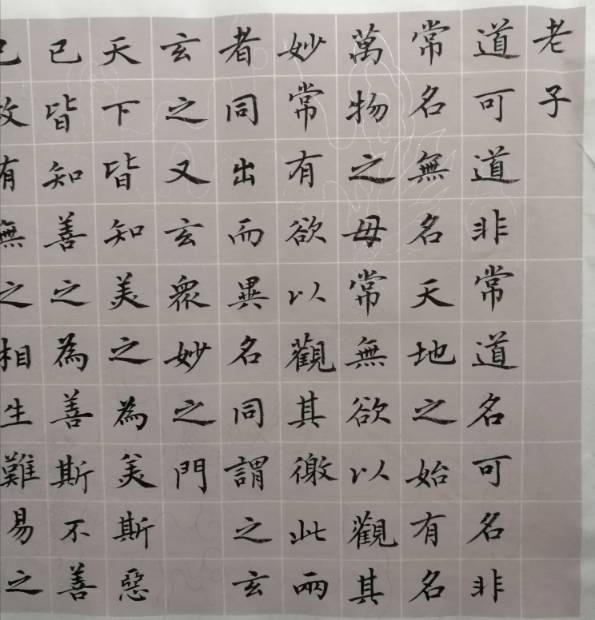 老子
道可道非常道名可名非
常名無名天地之始有名
萬物之母常無欲以觀其
妙常有欲以觀其徼此兩
者同出而異名同謂之玄
玄之又玄眾妙之門
天下皆知美之為美斯惡
已皆知善之為善斯不善
已故有無之相生難易之